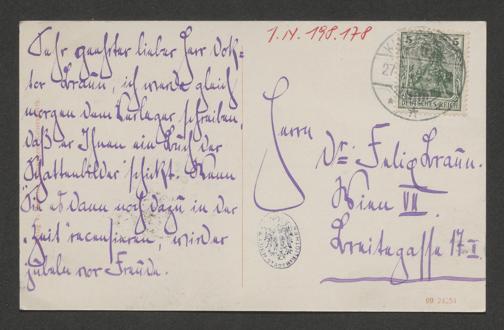 Sehr geehrter lieber Herr Dok-
tor Braun, ich werde gleich
morgen dem Verleger schreiben,
daß er Ihnen ein Buch der
"Schattenbilder" schickt. Wenn
Sie es dann noch dazu in der
"Zeit" recensieren, wird er
jubeln vor Freude.
I.N. 198.178
5 5
DEUTSCHES REICH
27
Herrn
Dr. Felix Braun.
Wien VII.
Breitegasse 17 I.
09 24254